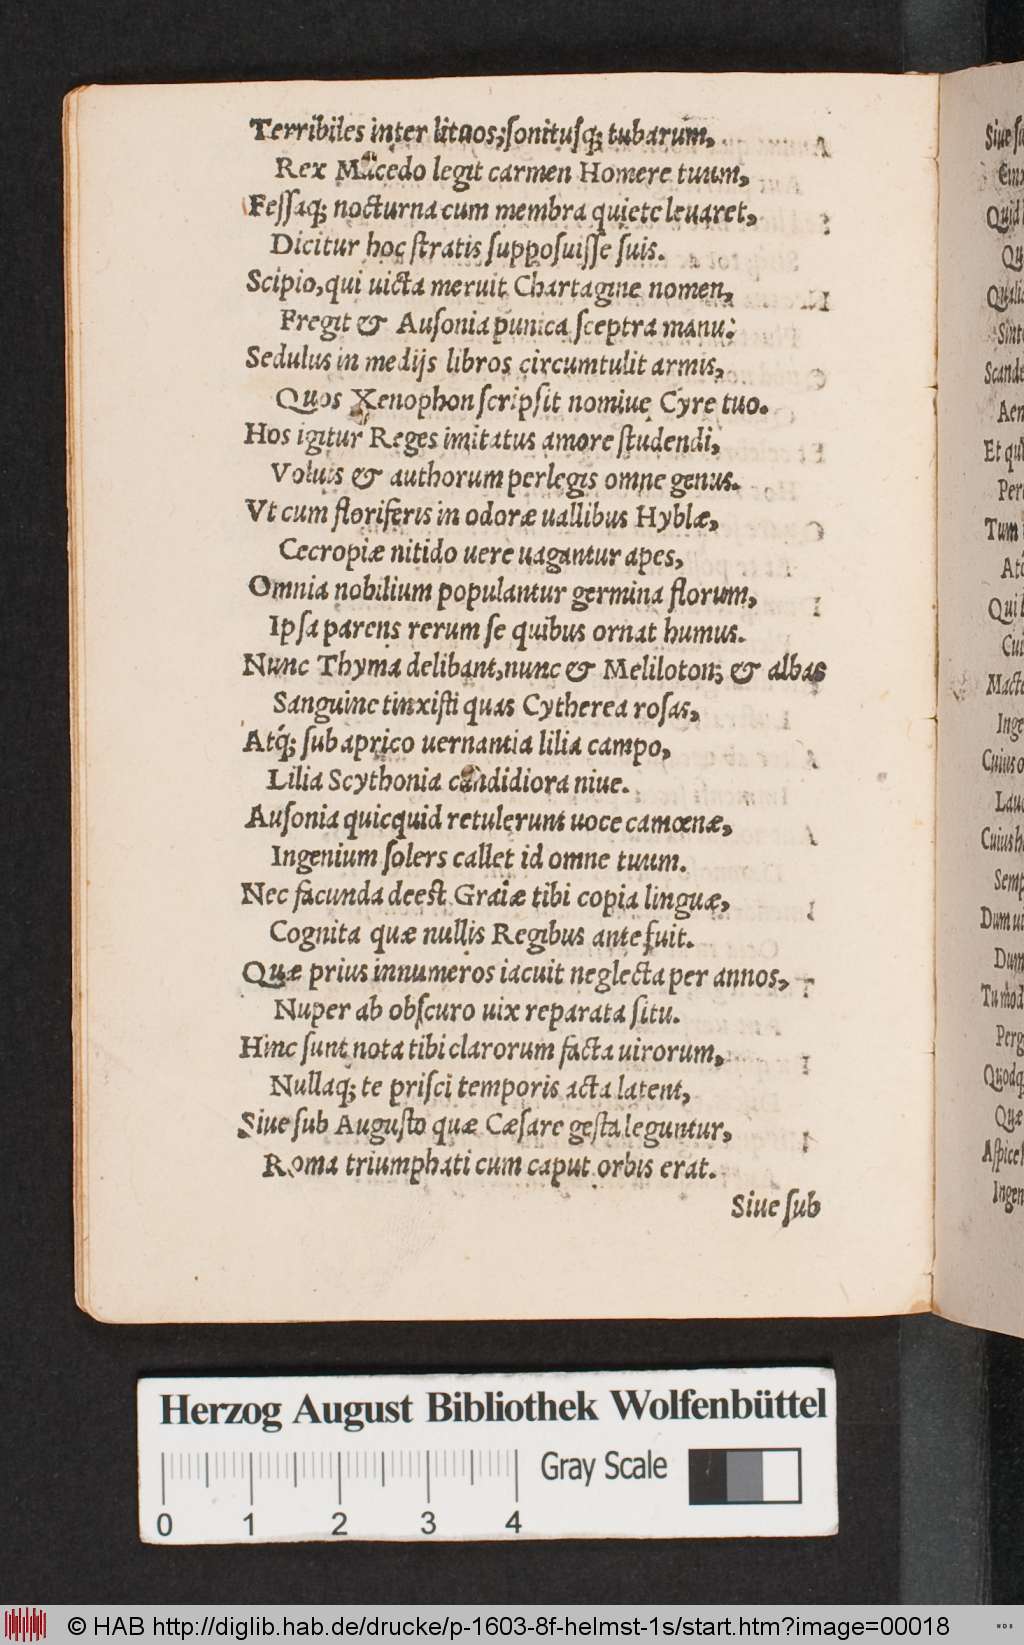 Terribiles inter lituos, sonitusq; tubarum,
Rex Macedo legit carmen Homere tuum,
Fessaq; nocturna cum membra quiete leuaret,
Dicitur hoc stratis supposuisse suis.
Scipio, qui uicta meruit Chartagine nomen,
Fregit & Ausonia punica sceptra manu:
Sedulus in medijs libros circumtulit armis,
Quos Xenophon scripsit nomiue Cyre tuo.
Hos igitur Reges imitatus amore studendi,
Voluis & authorum perlegis omne genus.
Vt cum floriferis in odoræ uallibus Hyblæ,
Cecropiæ nitido uere uagantur apes,
Omnia nobilium populantur germina florum,
Ipsa parens rerum se quibus ornat humus.
Nunc Thyma delibant, nunc & Meliloton; & albas
Sanguine tinxisti quas Cytherea rosas,
Atq́; sub aprico uernantia lilia campo,
Lilia Scythonia candidiora niue.
Ausonia quicquid retulerunt uoce camœnæ,
Ingenium solers callet id omne tuum.
Nec facunda deest Graiæ tibi copia linguæ,
Cognita quæ nullis Regibus ante fuit.
Quæ prius innumeros iacuit neglecta per annos,
Nuper ab obscuro uix reparata situ.
Hinc sunt nota tibi clarorum facta uirorum,
Nullaq; te prisci temporis acta latent,
Siue sub Augusto quæ Cæsare gesta leguntur,
Roma triumphati cum caput orbis erat.
Siue sub
Herzog August Bibliothek Wolfenbüttel
Gray Scale
0 1 2 3 4
© HAB http://diglib.hab.de/drucke/p-1603-8f-helmst-1s/start.htm?image=00018